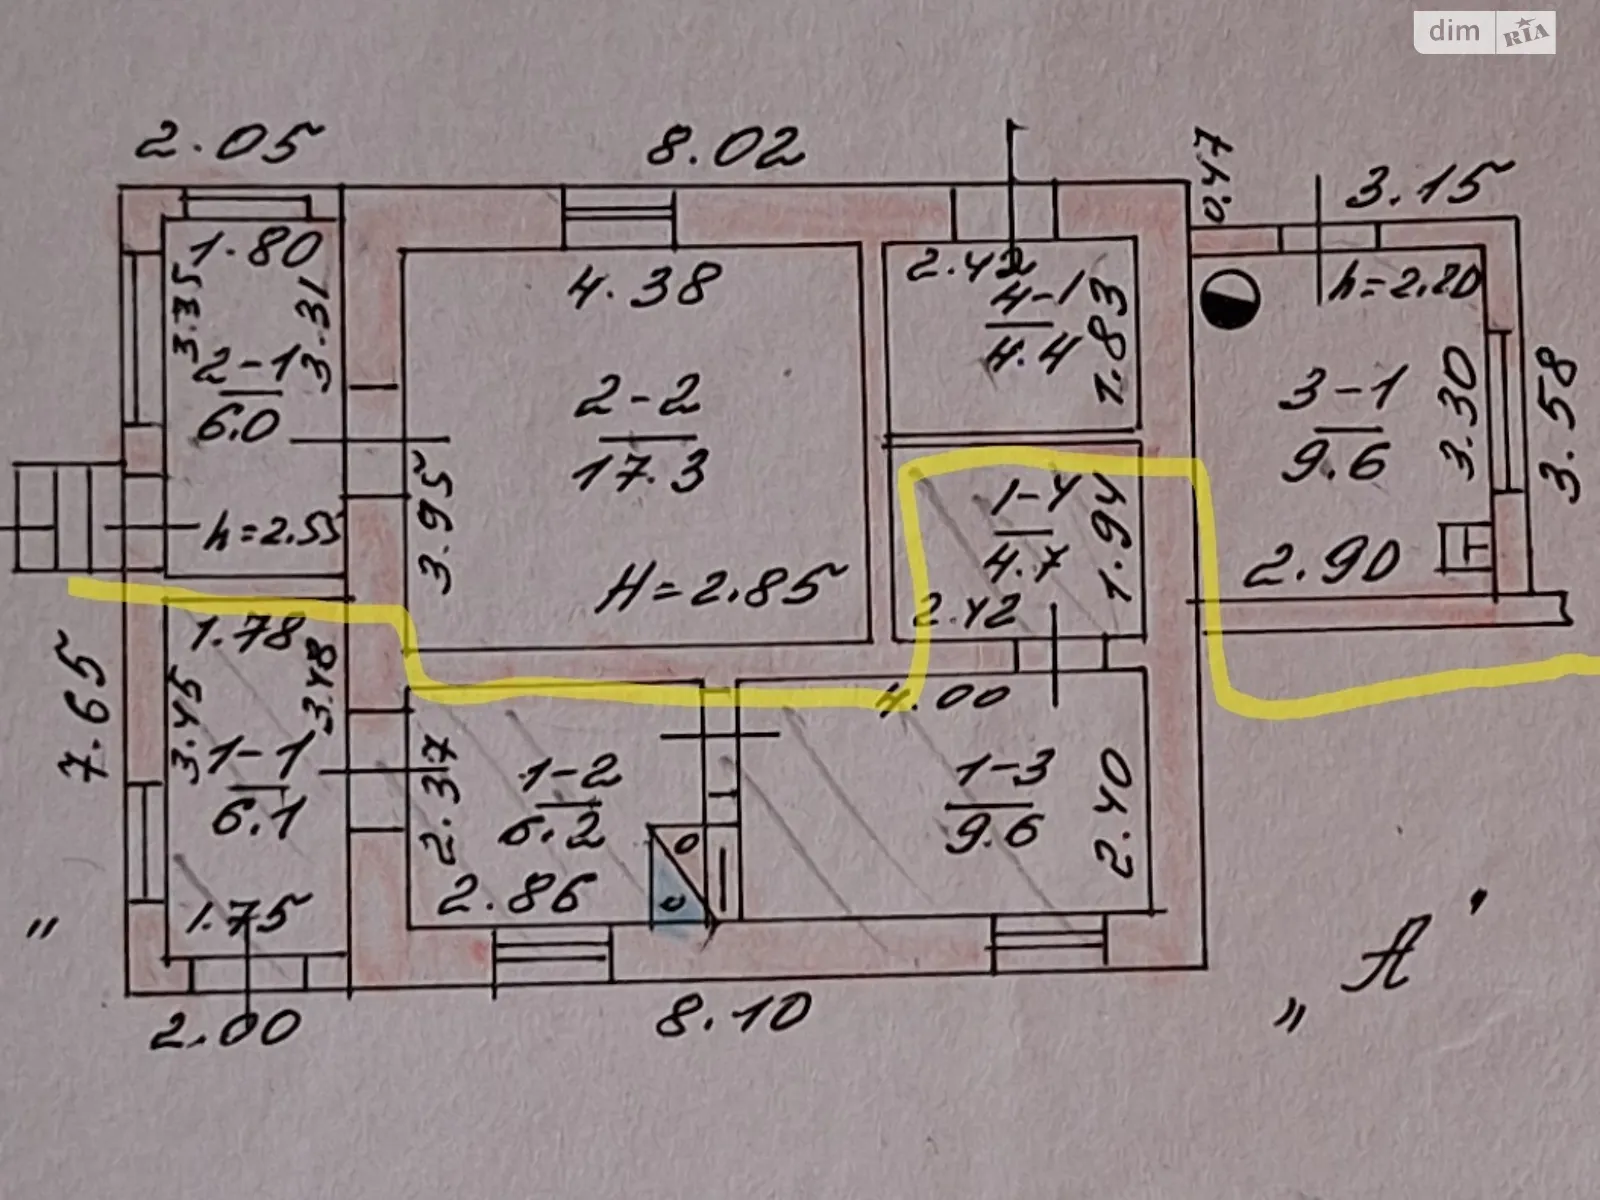 dim RIA
2.05
8.02
0.47
3.15
1.80
3.35
3.31
2-1
6.0
h=2.55
4.38
2-2
17.3
3.95
H=2.85
2.42
4-1
4.4
1.83
h=2.20
3-1
9.6
3.30
3.58
2.90
1-4
4.7
1.94
2.42
7.65
1.78
3.45
3.48
1-1
6.1
1.75
2.37
1-2
6.2
2.86
4.00
1-3
9.6
2.40
2.00
8.10
„A"
„